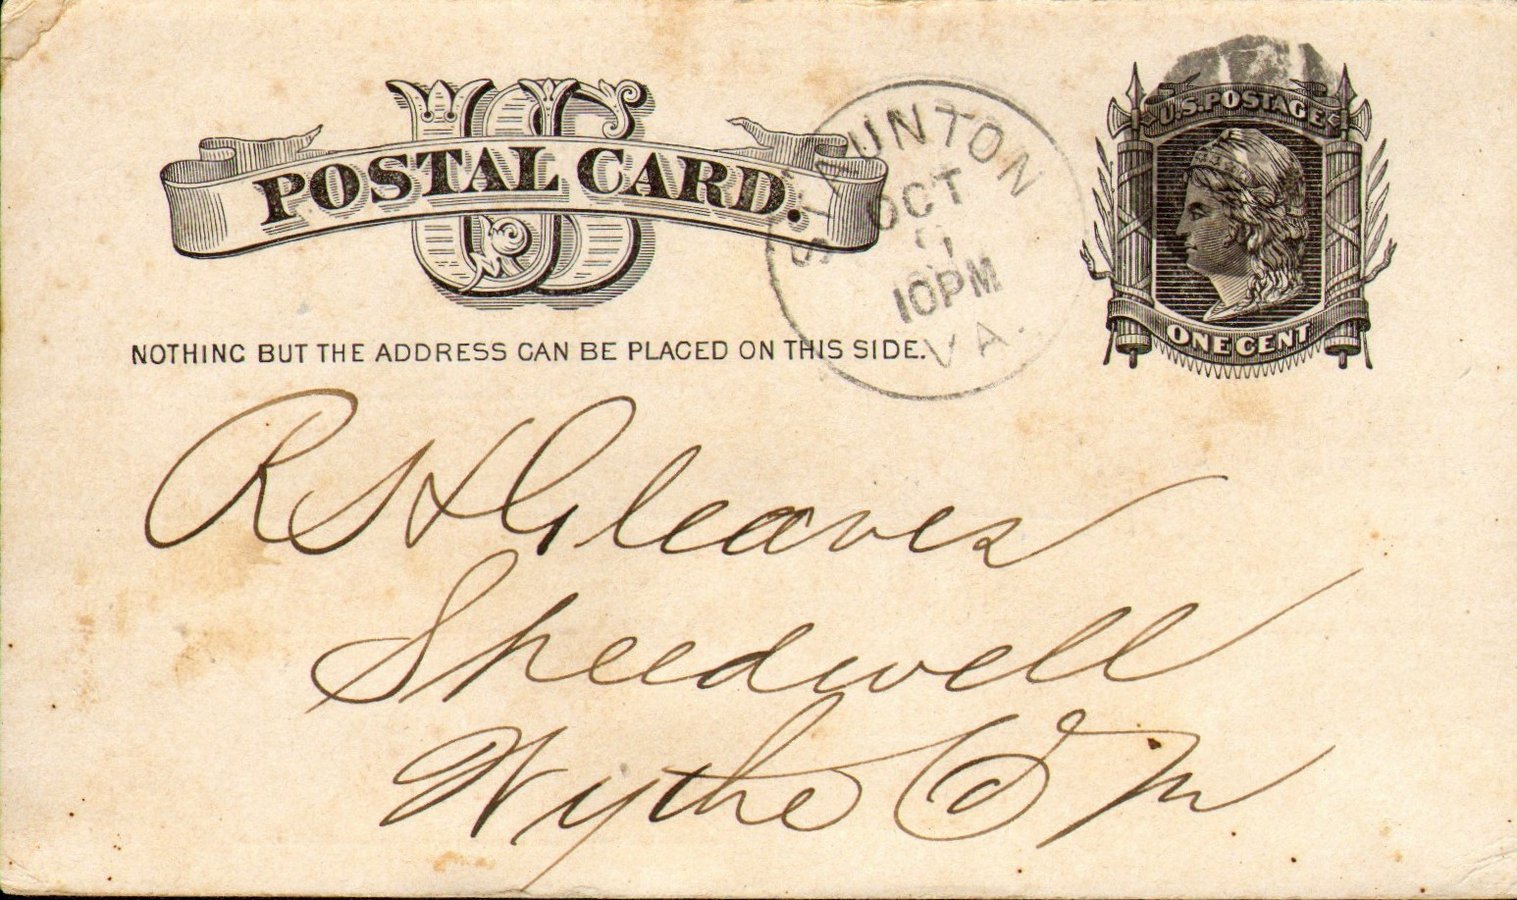 US
POSTAL CARD.
NOTHING BUT THE ADDRESS CAN BE PLACED ON THIS SIDE.
STAUNTON
OCT
10PM
VA.
U.S. POSTAGE
ONE CENT
R S H Gleaves
Speedwell
Wythe Co